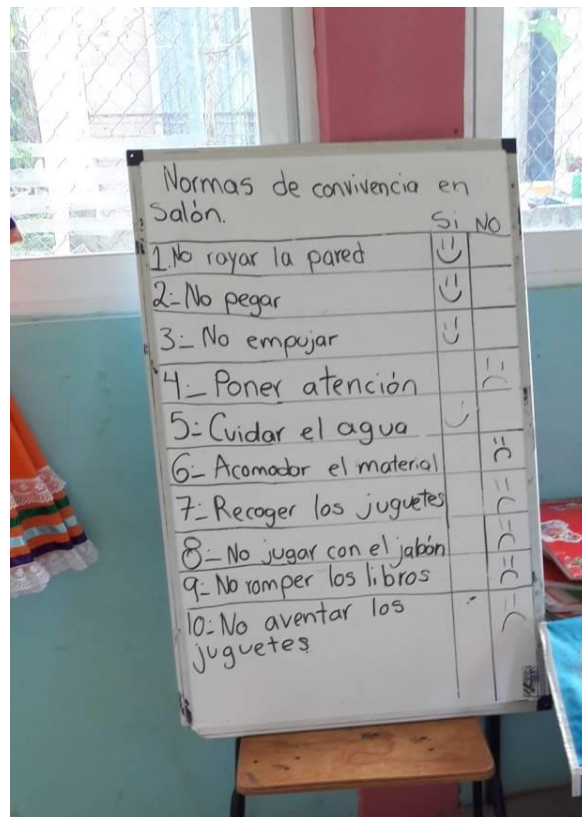 Normas de convivencia en
Salón.
Si NO
1.No rayar la pared
2.- No pegar
3.- No empujar
4.- Poner atención
5.- Cuidar el agua
6.- Acomodar el material
7.- Recoger los juguetes
8.- No jugar con el jabón
9.- No romper los libros
10.- No aventar los
juguetes